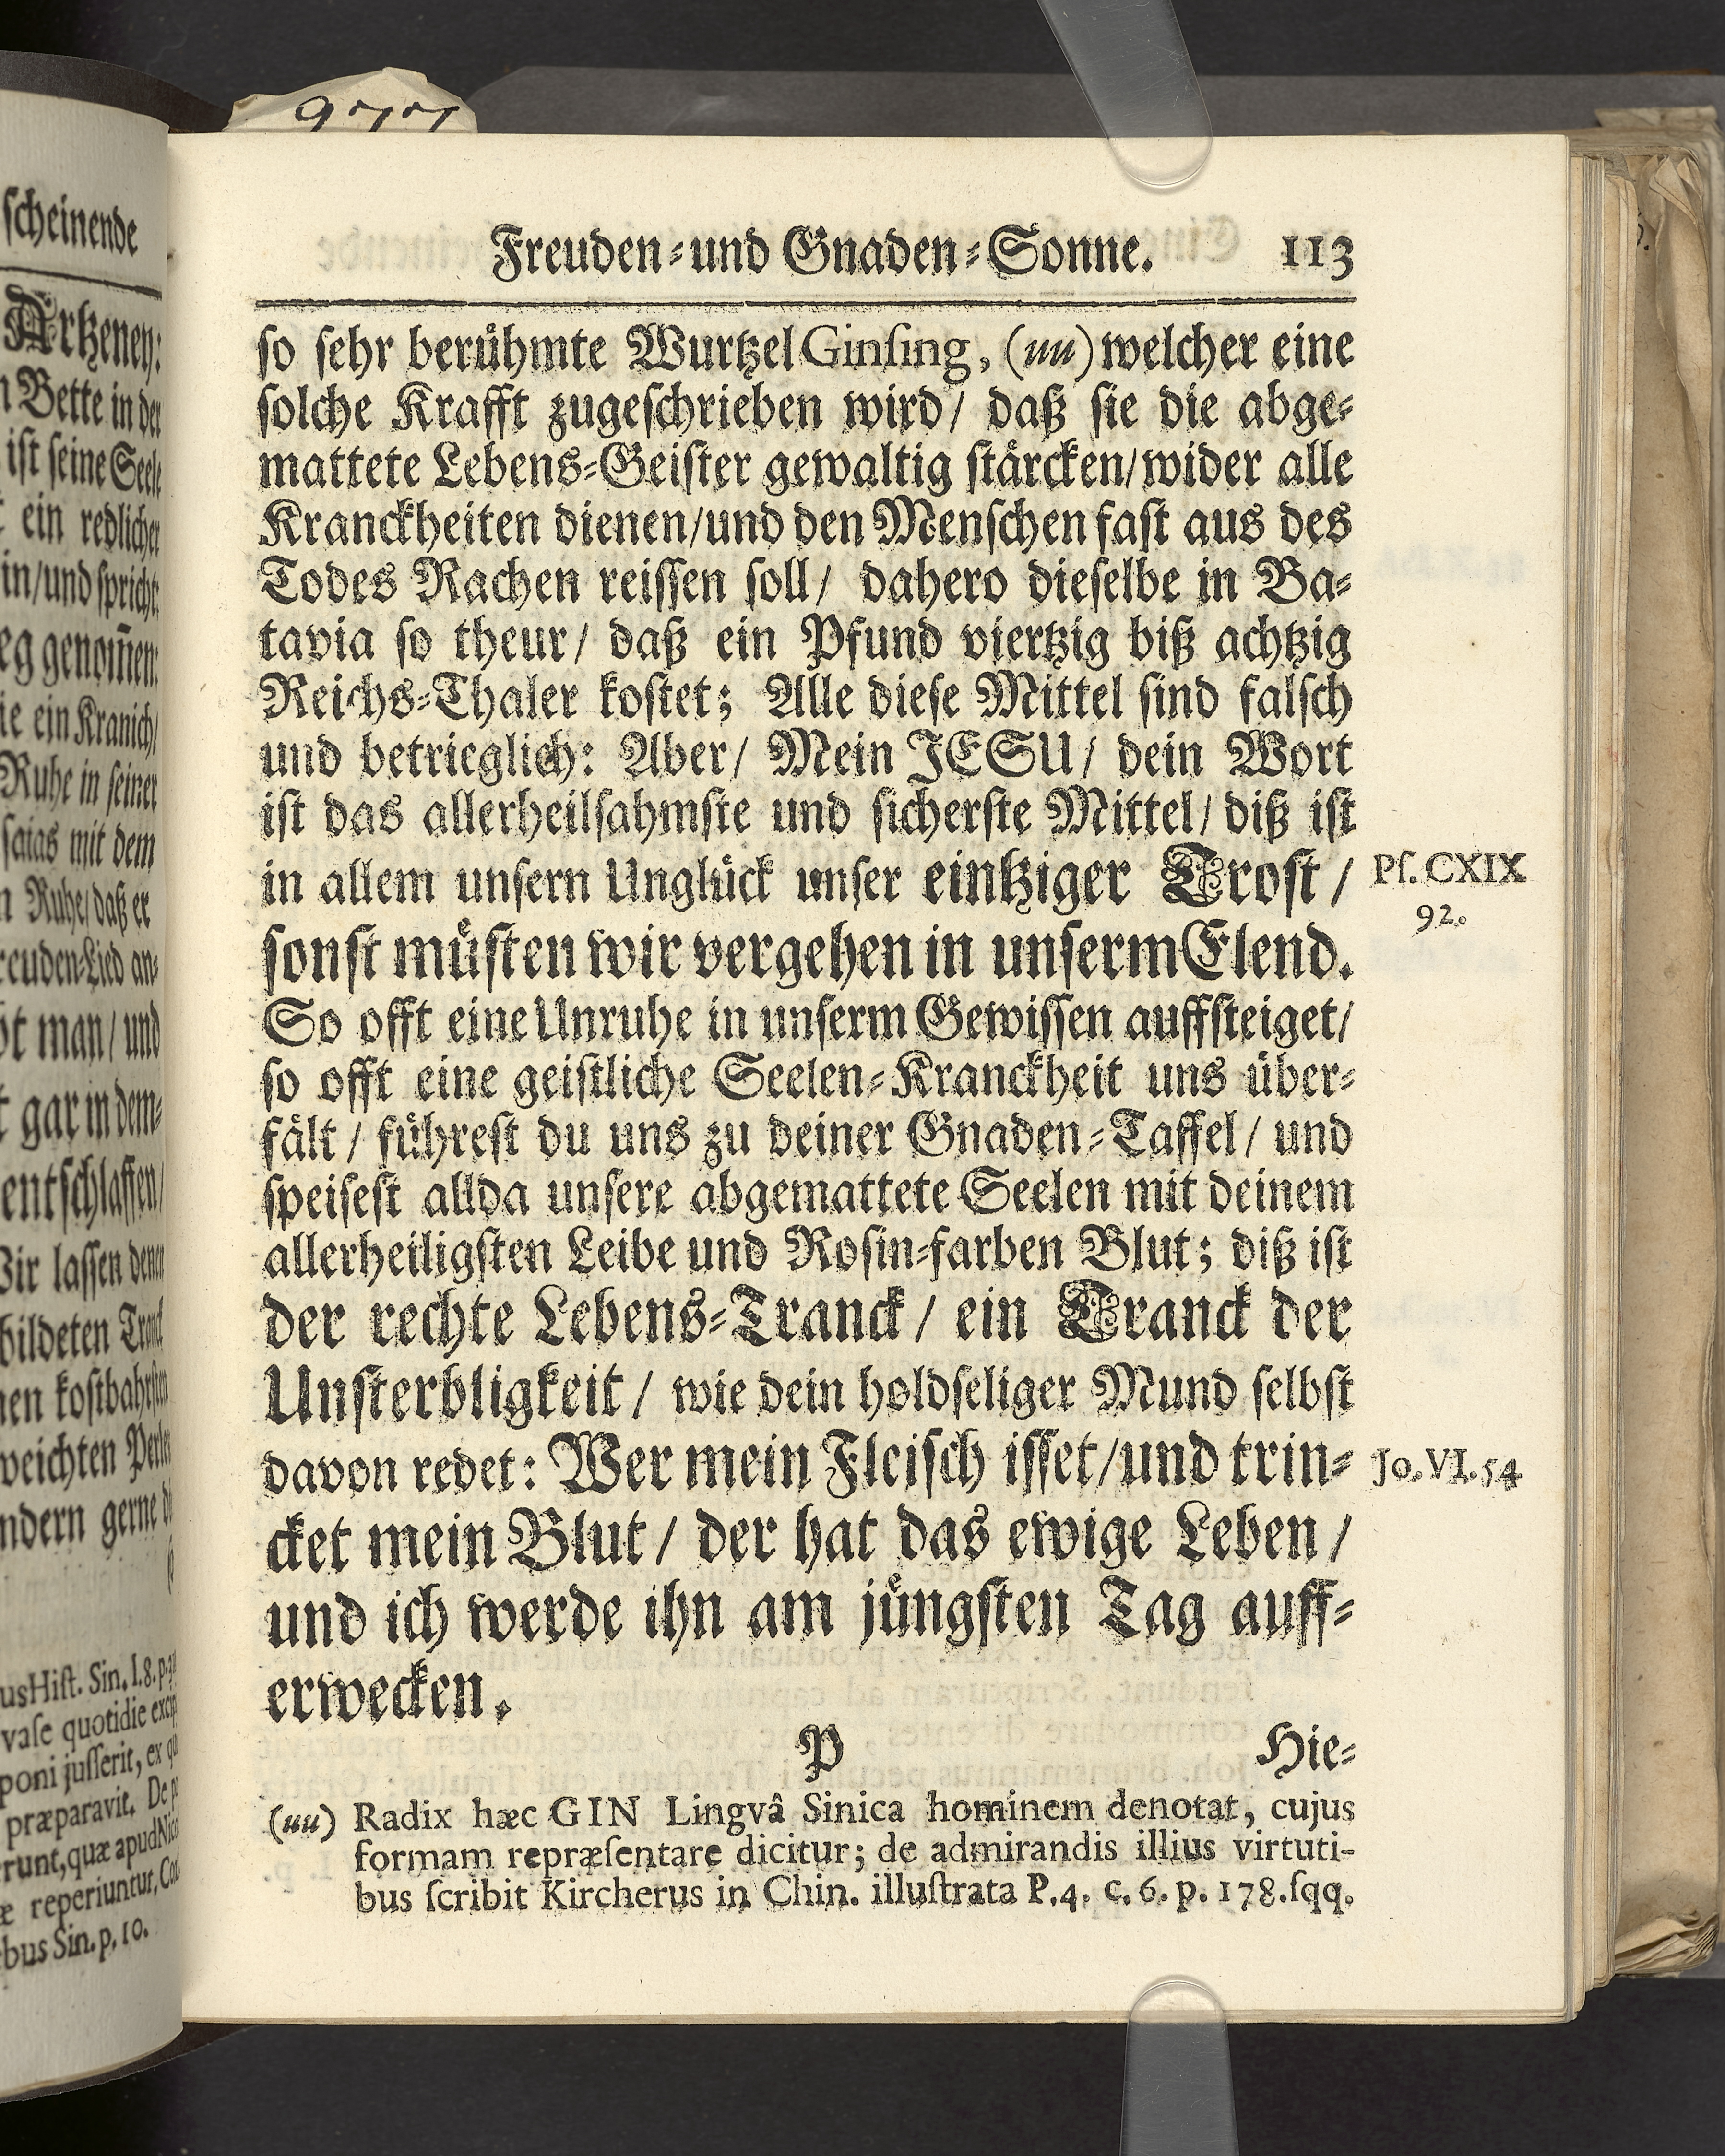 977
scheinende
Artzeney:
Bette in der
ist seine Seele
ein redlicher
in/und spricht:
eg genom̃en:
ie ein Kranich/
Ruhe in seiner
saias mit dem
Ruhe/ daß er
reuden-Lied an-
man/ und
gar in dem-
entschlaffen/
Wir lassen denen
bildeten Tranck
kostbahrsten
weichten Perlen
ndern gerne
usHist. Sin. l.8. p.
vase quotidie
poni jusserit, ex
præparavit. De
erunt, quæ apud
æ reperiuntur,
bus Sin. p. 10.
Freuden-und Gnaden-Sonne. 113
so sehr berühmte Wurtzel Ginsing, (uu) welcher eine
solche Krafft zugeschrieben wird/ daß sie die abge-
mattete Lebens-Geister gewaltig stärcken/wider alle
Kranckheiten dienen/und den Menschen fast aus des
Todes Rachen reissen soll/ dahero dieselbe in Ba-
tavia so theur/ daß ein Pfund viertzig biß achtzig
Reichs-Thaler kostet; Alle diese Mittel sind falsch
und betrieglich: Aber/ Mein JESU/ dein Wort
ist das allerheilsahmste und sicherste Mittel/ diß ist
in allem unsern Unglück unser eintziger Trost/
sonst müsten wir vergehen in unserm Elend.
So offt eine Unruhe in unserm Gewissen auffsteiget/
so offt eine geistliche Seelen-Kranckheit uns über-
fält/ führest du uns zu deiner Gnaden-Taffel/ und
speisest allda unsere abgemattete Seelen mit deinem
allerheiligsten Leibe und Rosin-farben Blut; diß ist
der rechte Lebens-Tranck/ ein Tranck der
Unsterbligkeit/ wie dein holdseliger Mund selbst
davon redet: Wer mein Fleisch isset/und trin-
cket mein Blut/ der hat das ewige Leben/
und ich werde ihn am jüngsten Tag auff-
erwecken.
P Hie-
(uu) Radix hæc GIN Lingvâ Sinica hominem denotat, cujus
formam repræsentare dicitur; de admirandis illius virtuti-
bus scribit Kircherus in Chin. illustrata P.4. c. 6. p. 178.sqq.
Ps. CXIX
92.
Jo. VI. 54